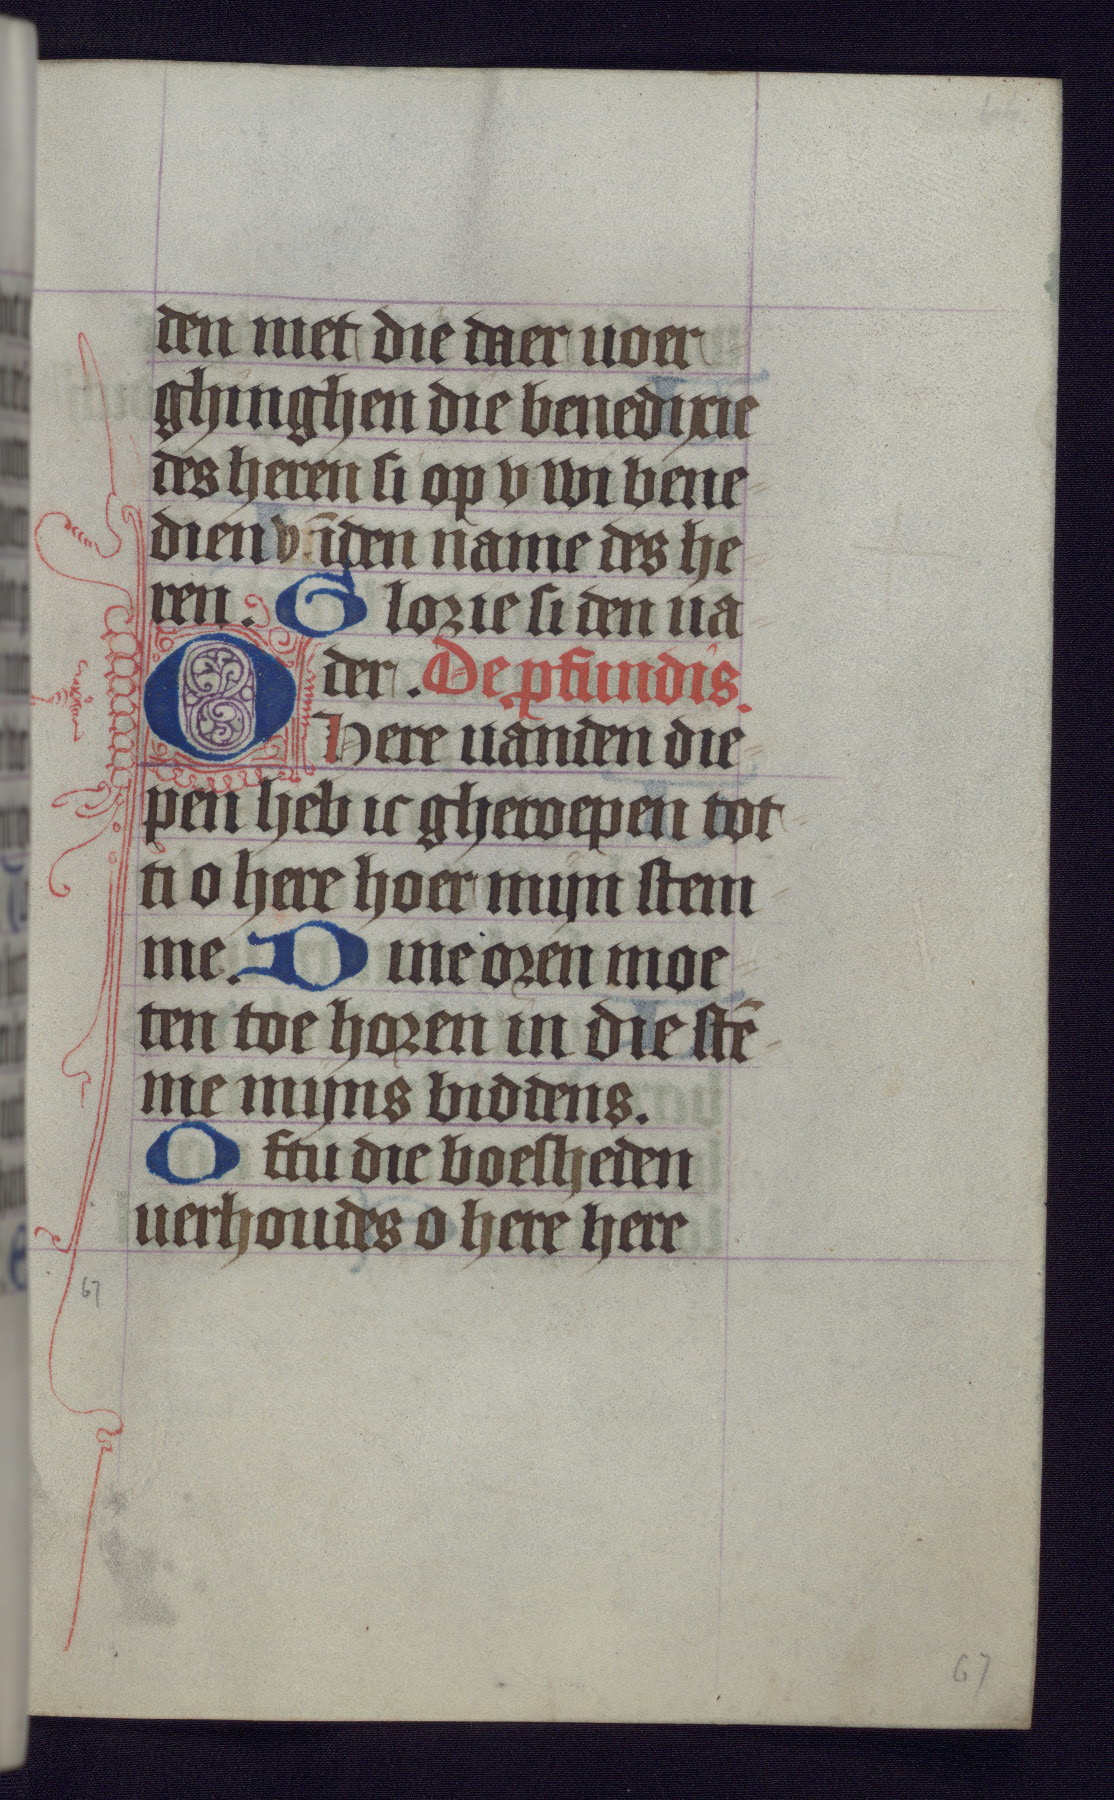 66
den niet die daer uoer
ghinghen die benedixie
des heren si op v wi bene
dien v īden name des he
ren. Glorie si den ua
der. De pfundis.
O Here uanden die
pen heb ic gheroepen tot
ti o here hoer mijn stem
me. Dine oren moe
ten toe horen in die stē
me mijns biddens.
Oftu die boesheden
uerhoudes o here here
67
67